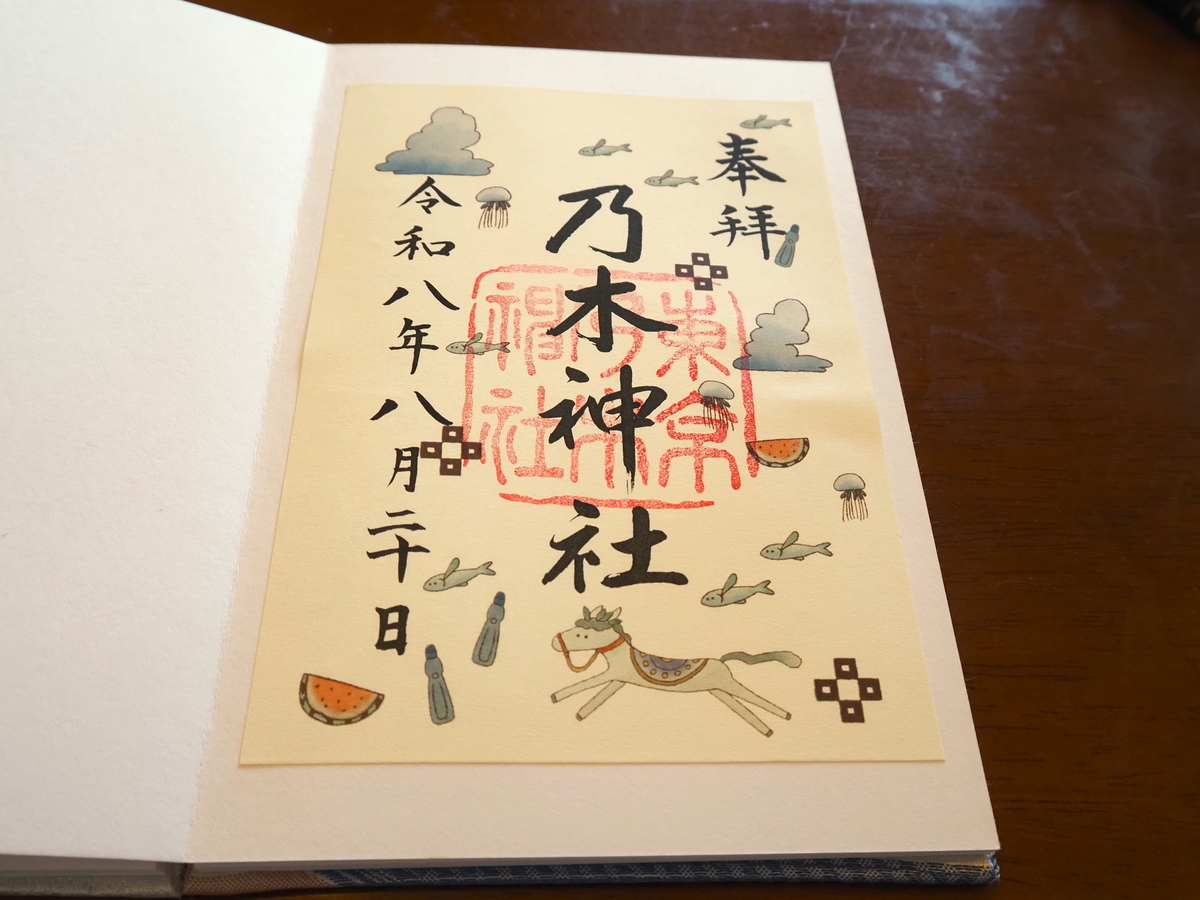 奉拝
乃木神社
令和八年八月二十日
東京
乃木
神社